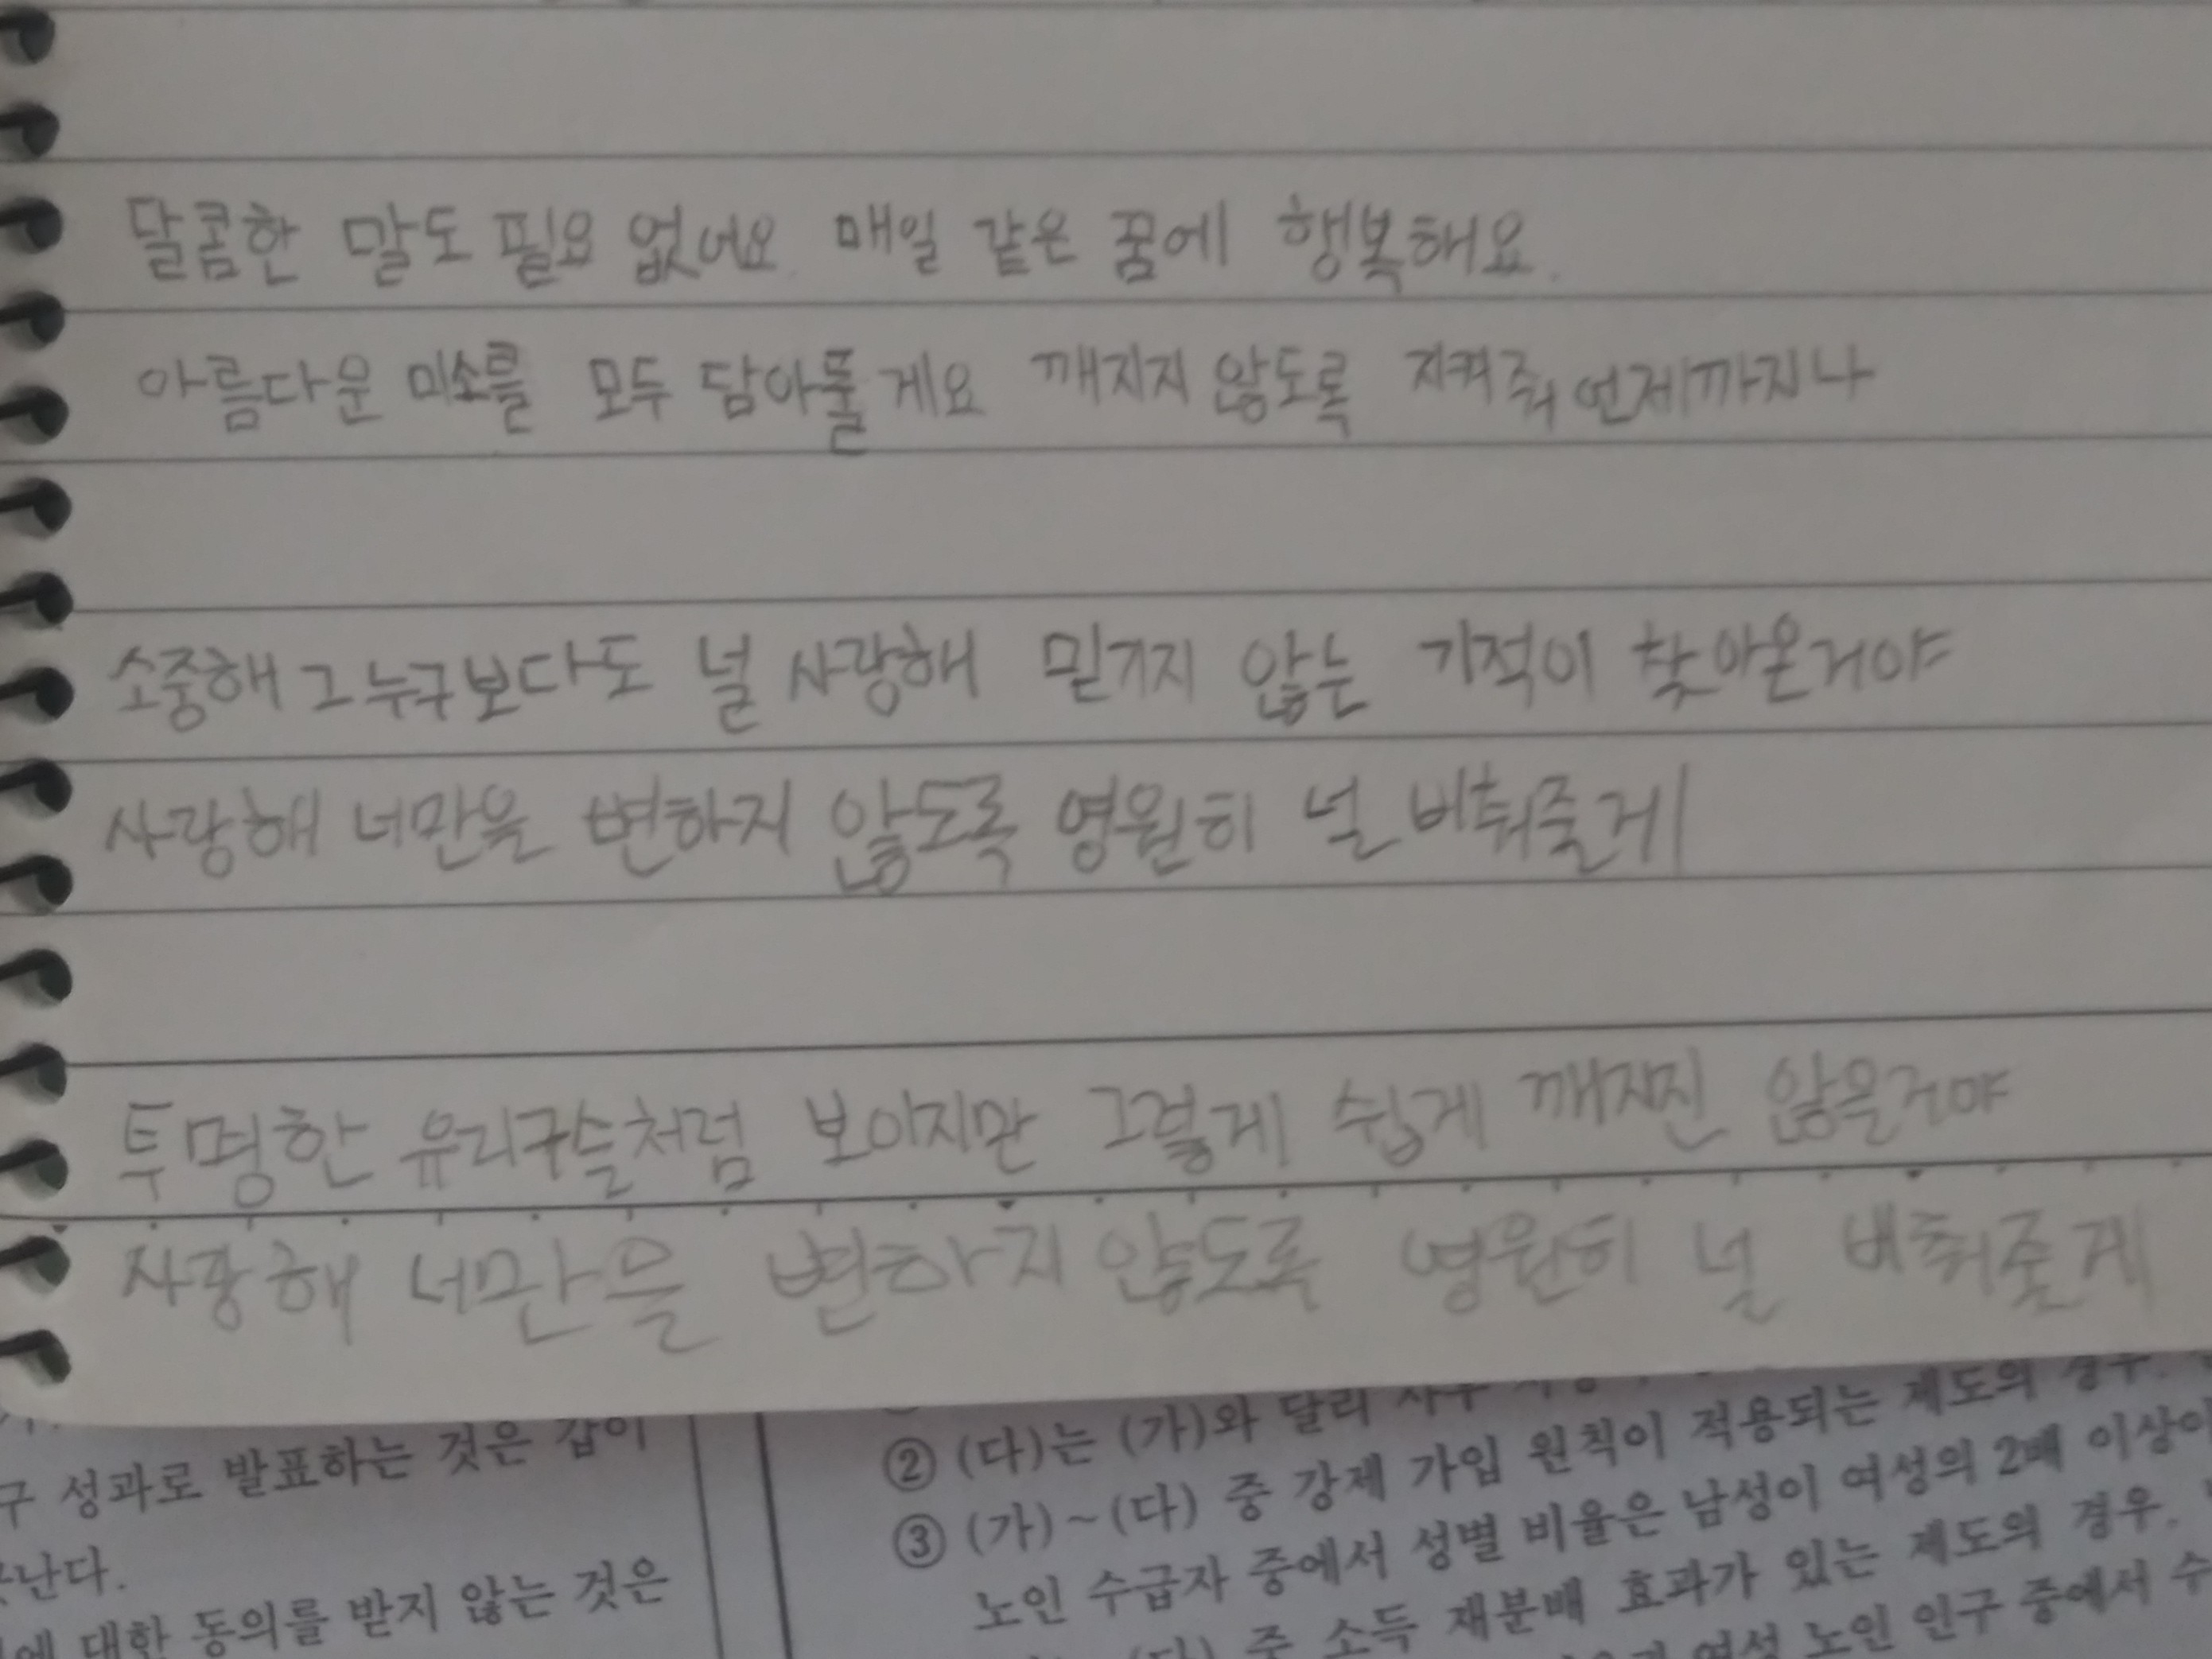 달콤한 말도 필요 없어요. 매일 같은 꿈에 행복해요.
아름다운 미소를 모두 담아둘게요 깨지지 않도록 지켜줘 언제까지나
소중해 그 누구보다도 널 사랑해 믿기지 않는 기적이 찾아온거야
사랑해 너만을 변하지 않도록 영원히 널 비춰줄게
투명한 유리구슬처럼 보이지만 그렇게 쉽게 깨지진 않을거야
사랑해 너만을 변하지 않도록 영원히 널 비춰줄게
구 성과로 발표하는 것은 값이
난다.
에 대한 동의를 받지 않는 것은
② (다)는 (가)와 달리 사후 제도의 경우.
③ (가)~(다) 중 강제 가입 원칙이 적용되는
노인 수급자 중에서 성별 비율은 남성이 여성의 2배 이상이
(다) 중 소득 재분배 효과가 있는 제도의 경우,
여성 노인 인구 중에서 수